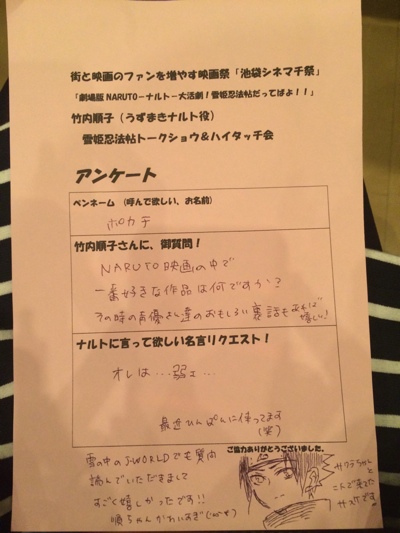 街と映画のファンを増やす映画祭「池袋シネマチ祭」
「劇場版NARUTO－ナルト－大活劇！雪姫忍法帖だってばよ！！」
竹内順子（うずまきナルト役）
雪姫忍法帖トークショウ＆ハイタッチ会
アンケート
ペンネーム（呼んで欲しい、お名前）
ポカテ
竹内順子さんに、御質問！
NARUTO映画の中で
一番好きな作品は何ですか？
その時の声優さん達のおもしろい裏話もあれば
嬉しい！
ナルトに言って欲しい名言リクエスト！
オレは…弱ェ…
最近ひんぱんに使ってます
（笑）
ご協力ありがとうございました。
雪の中のJ-WORLDでも質問
読んでいただきまして
すごく嬉しかったです！！
順ちゃんかわいすぎ
サクラちゃん
と
サスケです